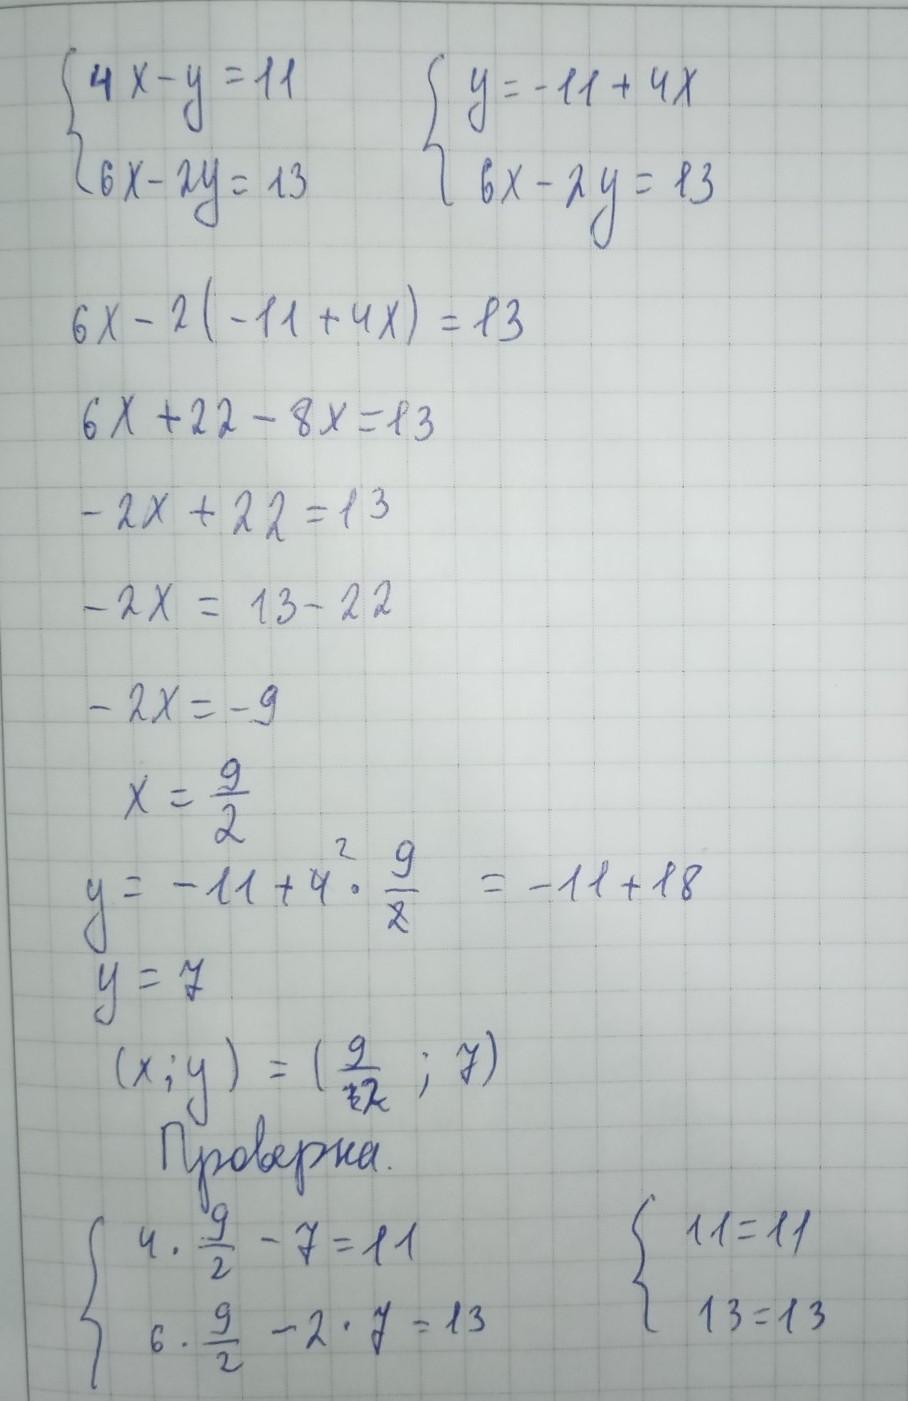 {4x-y=11 {y=-11+4x
{6x-2y=13 {6x-2y=13
6x-2(-11+4x)=13
6x+22-8x=13
-2x+22=13
-2x=13-22
-2x=-9
x=9/2
y=-11+4²·9/2 =-11+18
y=7
(x;y)=(9/2;7)
Проверка.
{4·9/2-7=11 {11=11
{6·9/2-2·7=13 {13=13